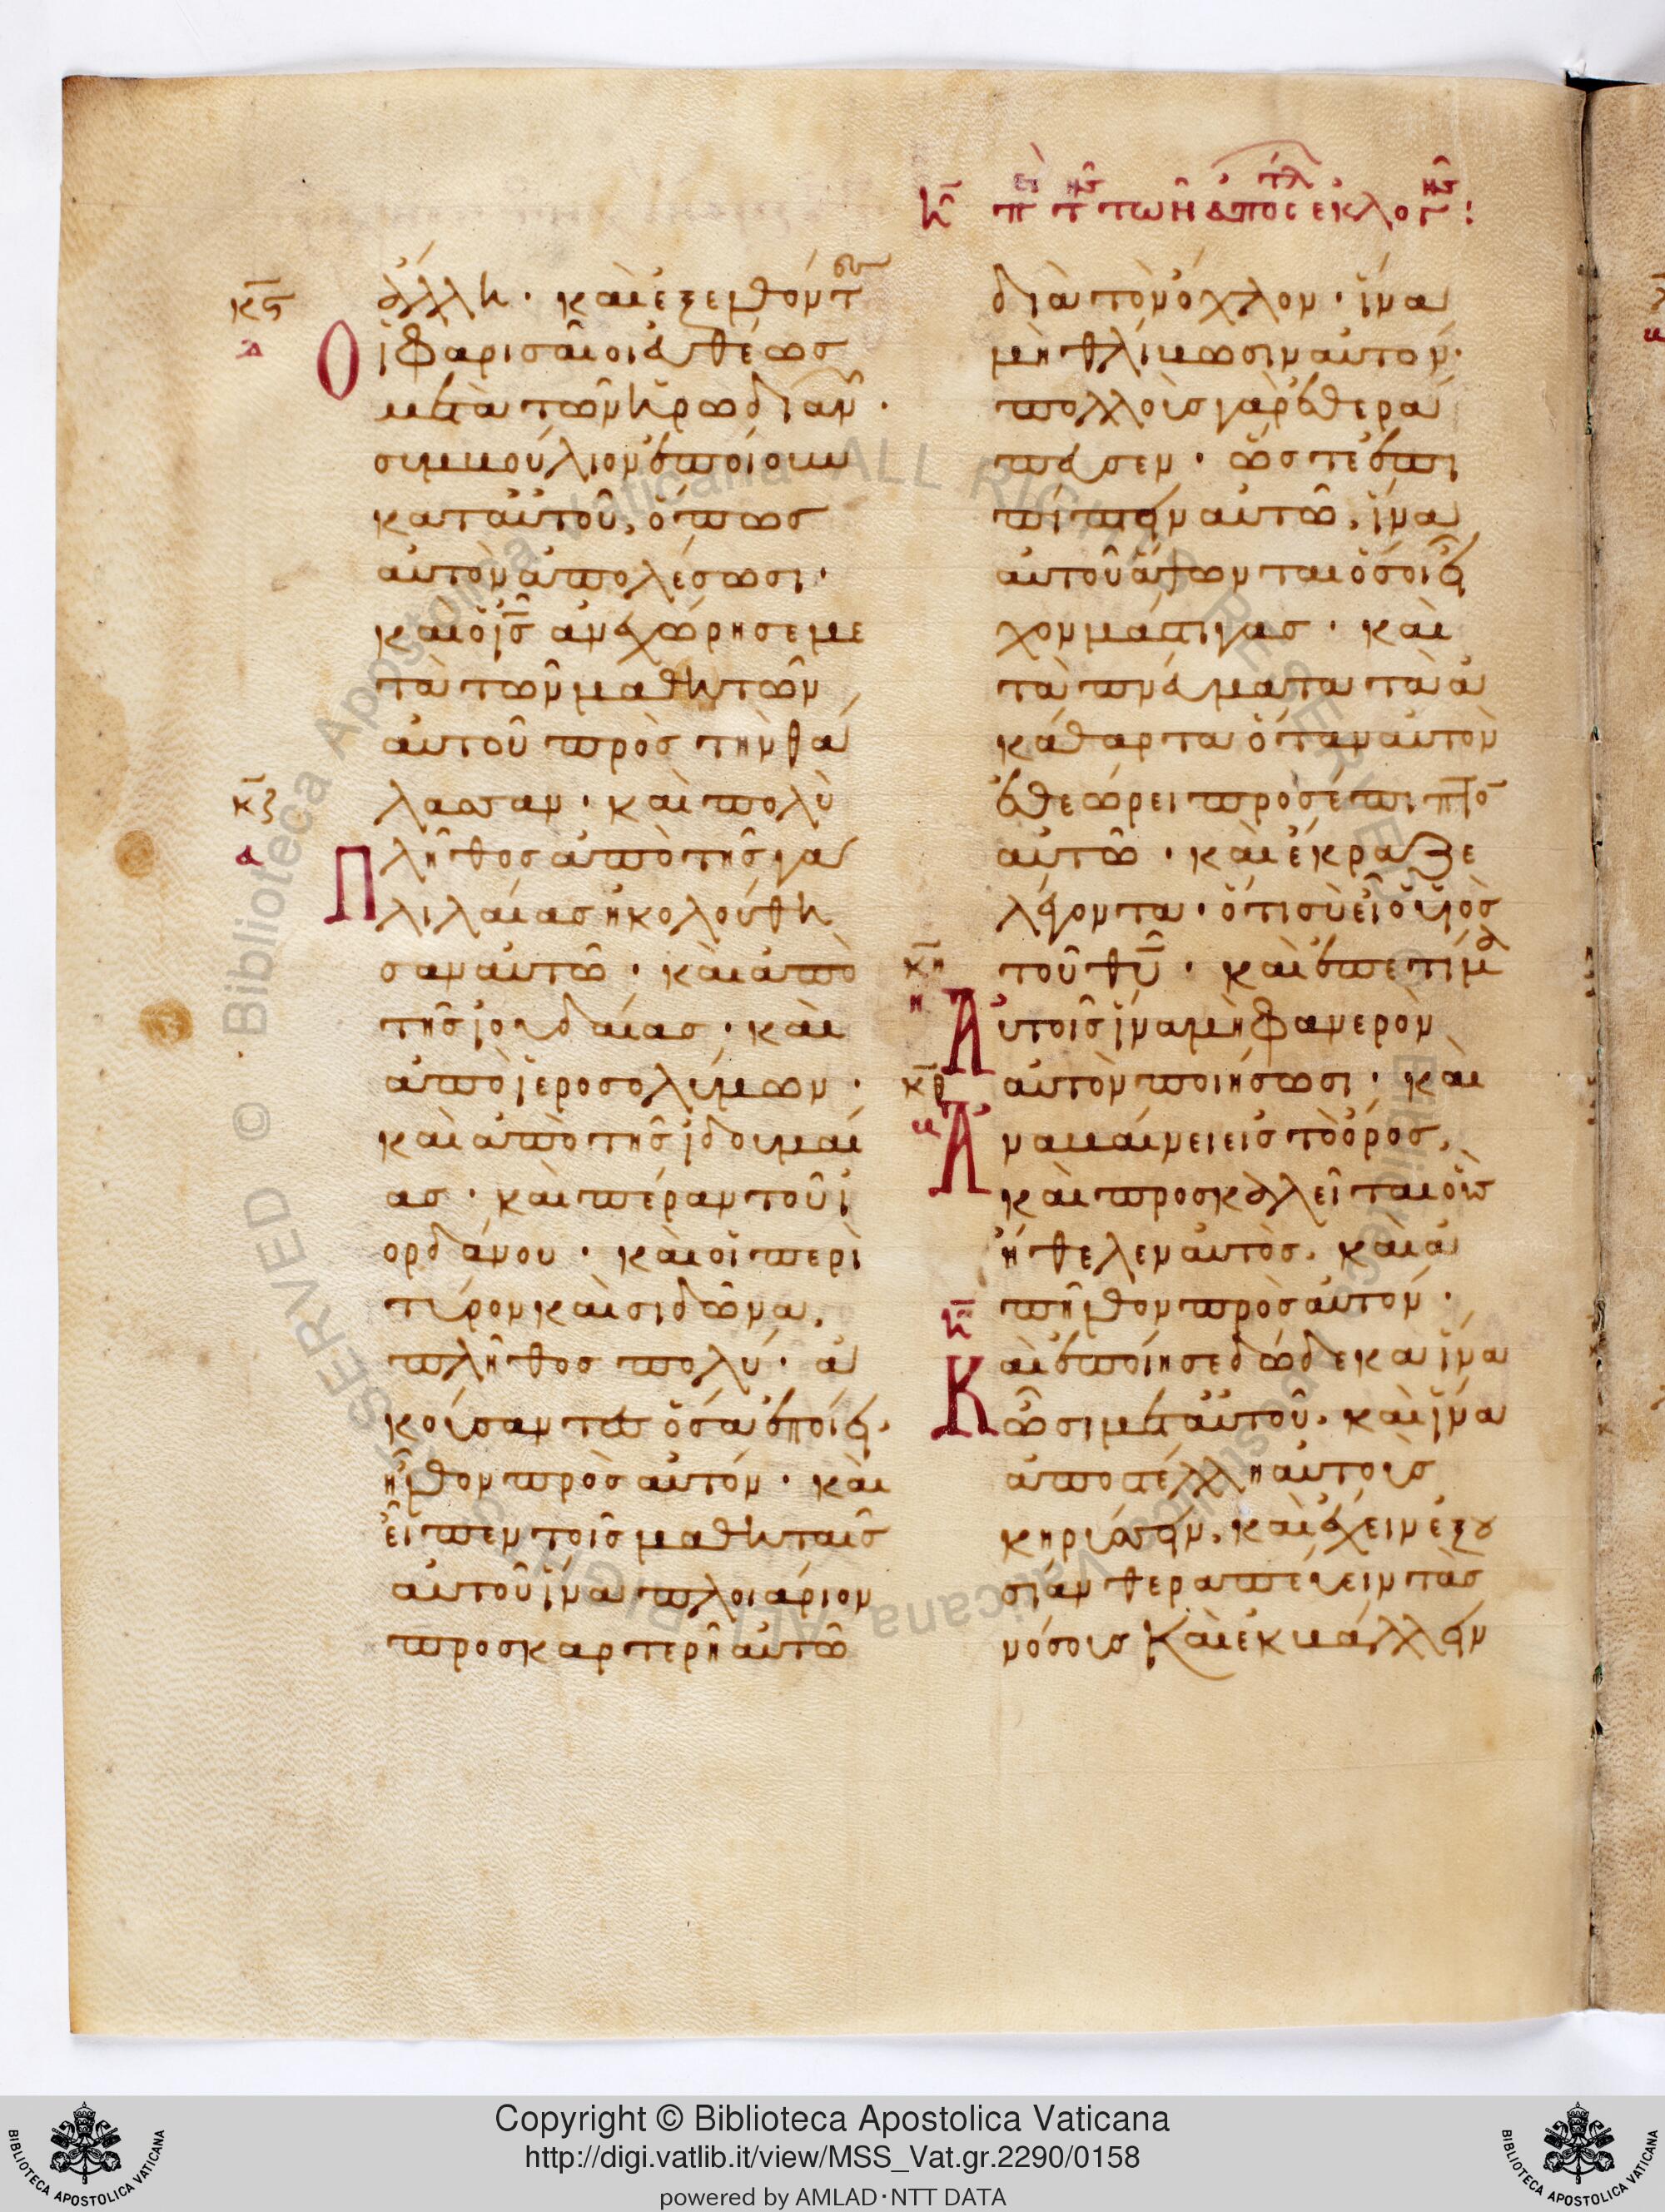 κ̄ π̄ερὶ τ̄ῆς τῶν ἀποστόλ ἐκλογῆς:
κ̄ς̄
ἄλλη· καὶ ἐξελθόντες
δ
Οἱ φαρισαῖοι εὐθέως
μετὰ τῶν ἡρωδιαν̑·
συμβούλιον ἐποίουν
κατ᾽ αὐτοῦ, ὅπως
αὐτὸν ἀπολέσωσι·
καὶ ὁ ι̅ς̅ ἀνεχώρησε με
τὰ τῶν μαθητῶν
αὐτοῦ πρὸς τὴν θά
κ̄ζ̄
λασσαν· καὶ πολὺ
α
Πλῆθος ἀπὸ τῆς γα
λιλαίας ἠκολούθη
σαν αὐτῶ· καὶ ἀπὸ
τῆς ἰουδαίας· καὶ
ἀπὸ ἱεροσολύμων·
καὶ ἀπὸ τῆς ἰδουμαί
ας· καὶ πέραν τοῦ ἰ
ορδάνου· καὶ οἱ περὶ
τύρον καὶ σιδῶνα,
πλῆθος πολύ· ἀ
κούσαντες ὅσα ἐποίει·
ἦλθον πρὸς αὐτόν· καὶ
εἶπεν τοῖς μαθηταῖς
αὐτοῦ ἵνα πλοιάριον
προσκαρτερῆ αὐτῶ
διὰ τὸν ὄχλον· ἵνα
μὴ θλίβωσιν αὐτόν·
πολλοὺς γὰρ ἐθερά
πευσεν· ὥστε ἐπι
πίπτειν αὐτῶ, ἵνα
αὐτοῦ ἅψωνται ὅσοι εἶ
χον μάστιγας· καὶ
τὰ πνεύματα τὰ ἀ
κάθαρτα ὅταν αὐτὸν
ἐθεώρει προσέπιπτον
αὐτῶ· καὶ ἔκραζε
λέγοντα· ὅτι σὺ εἶ ὁ υἱὸς
κ̄η̄
τοῦ θ̅υ̅· καὶ ἐπετίμα
η
Αὐτοῖς ἵνα μὴ φανερὸν
κ̄θ̄
αὐτὸν ποιήσωσι· καὶ
β
Ἀναβαίνει εἰς τὸ ὄρος,
καὶ προσκαλεῖται οὓς
ἤθελεν αὐτὸς, καὶ ἀ
πῆλθον πρὸς αὐτόν·
κ̄
Καὶ ἐποίησε δώδεκα ἵνα
ὦσι μετ᾽ αὐτοῦ· καὶ ἵνα
ἀποστέλλη αὐτοὺς
κηρύσσειν, καὶ ἔχειν ἐξου
σίαν θεραπεύειν τὰς
νόσους καὶ ἐκβάλλειν
© Biblioteca Apostolica Vaticana ALL RIGHTS RESERVED
BIBLIOTECA APOSTOLICA VATICANA
Copyright © Biblioteca Apostolica Vaticana
http://digi.vatlib.it/view/MSS_Vat.gr.2290/0158
powered by AMLAD·NTT DATA
BIBLIOTECA APOSTOLICA VATICANA